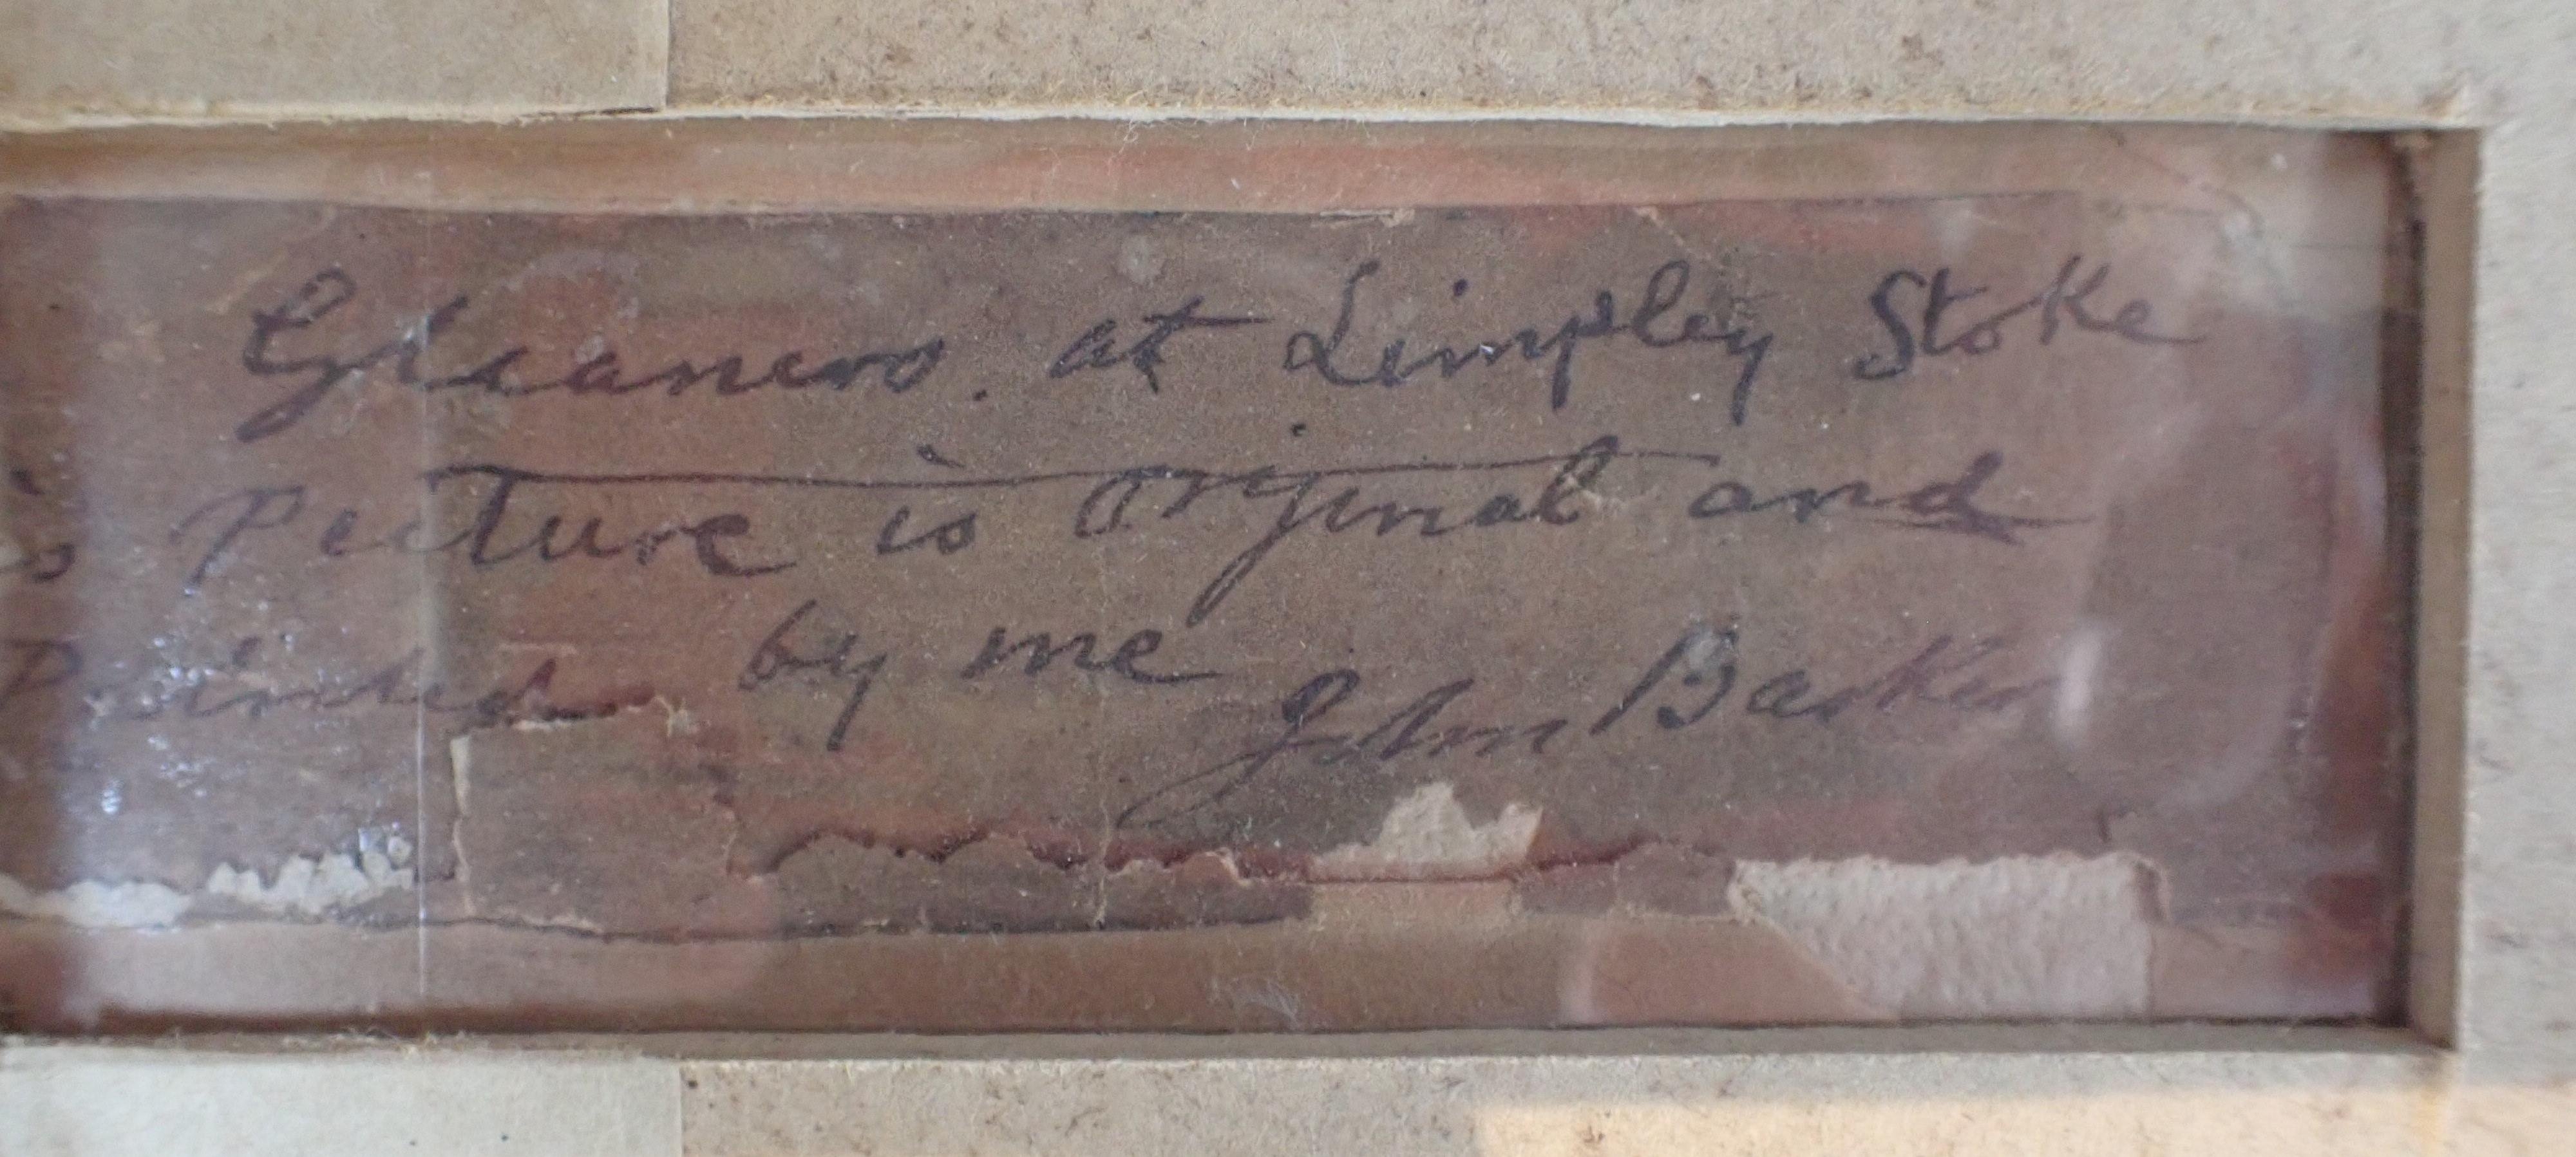 Gleaners. at Limpley Stoke
is Picture is Original and
Painted by me
John Barker